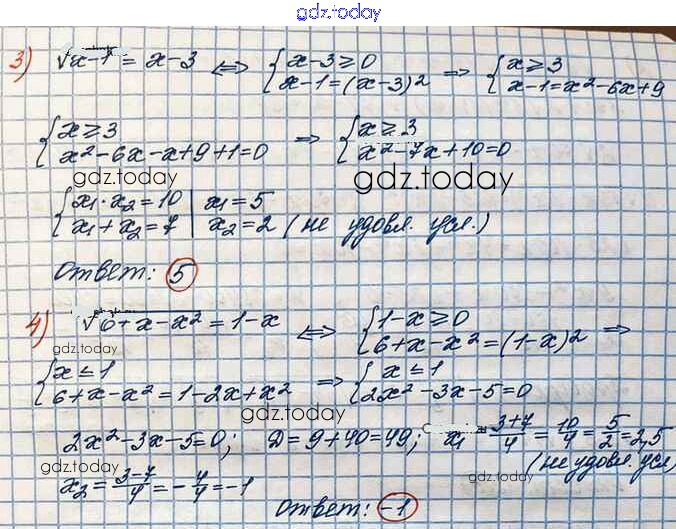 gdz.today
3) √x-1 = x-3 ⇔ { x-3≥0 x-1=(x-3)² ⇒ { x≥3 x-1=x²-6x+9
{ x≥3 x²-6x-x+9+1=0 ⇒ { x≥3 x²-7x+10=0
gdz.today gdz.today
{ x₁·x₂=10 x₁+x₂=7 | x₁=5 x₂=2 (не удовл. усл.)
Ответ: 5
4) √6+x-x² = 1-x ⇔ { 1-x≥0 6+x-x²=(1-x)² ⇒
gdz.today
{ x≤1 6+x-x²=1-2x+x² ⇒ { x≤1 2x²-3x-5=0
gdz.today
2x²-3x-5=0; D=9+40=49; x₁=(3+7)/4=10/4=5/2=2,5
(не удовл. усл)
gdz.today
x₂=(3-7)/4=-4/4=-1
gdz.today
Ответ: -1